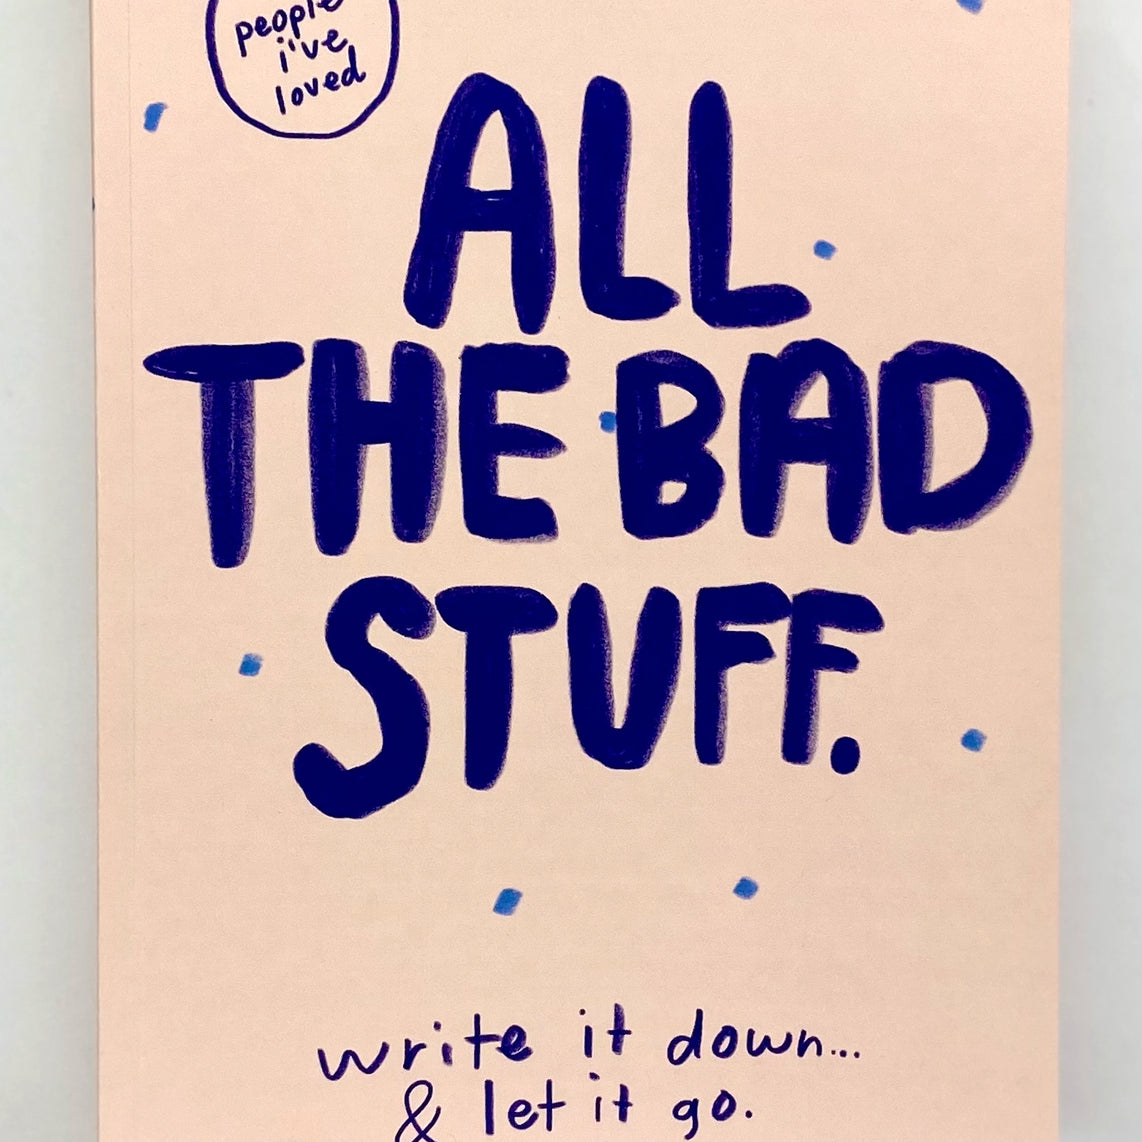 people
i've
loved
ALL
THE BAD
STUFF.
write it down...
& let it go.